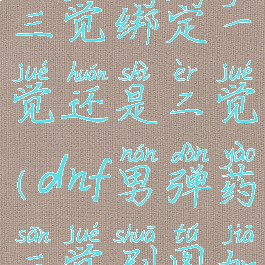 三觉绑定一
jué huán shì èr jué
觉还是二觉
nán dàn yào
(dnf男弹药
sān jué shuā tú jiā
三觉刷图加